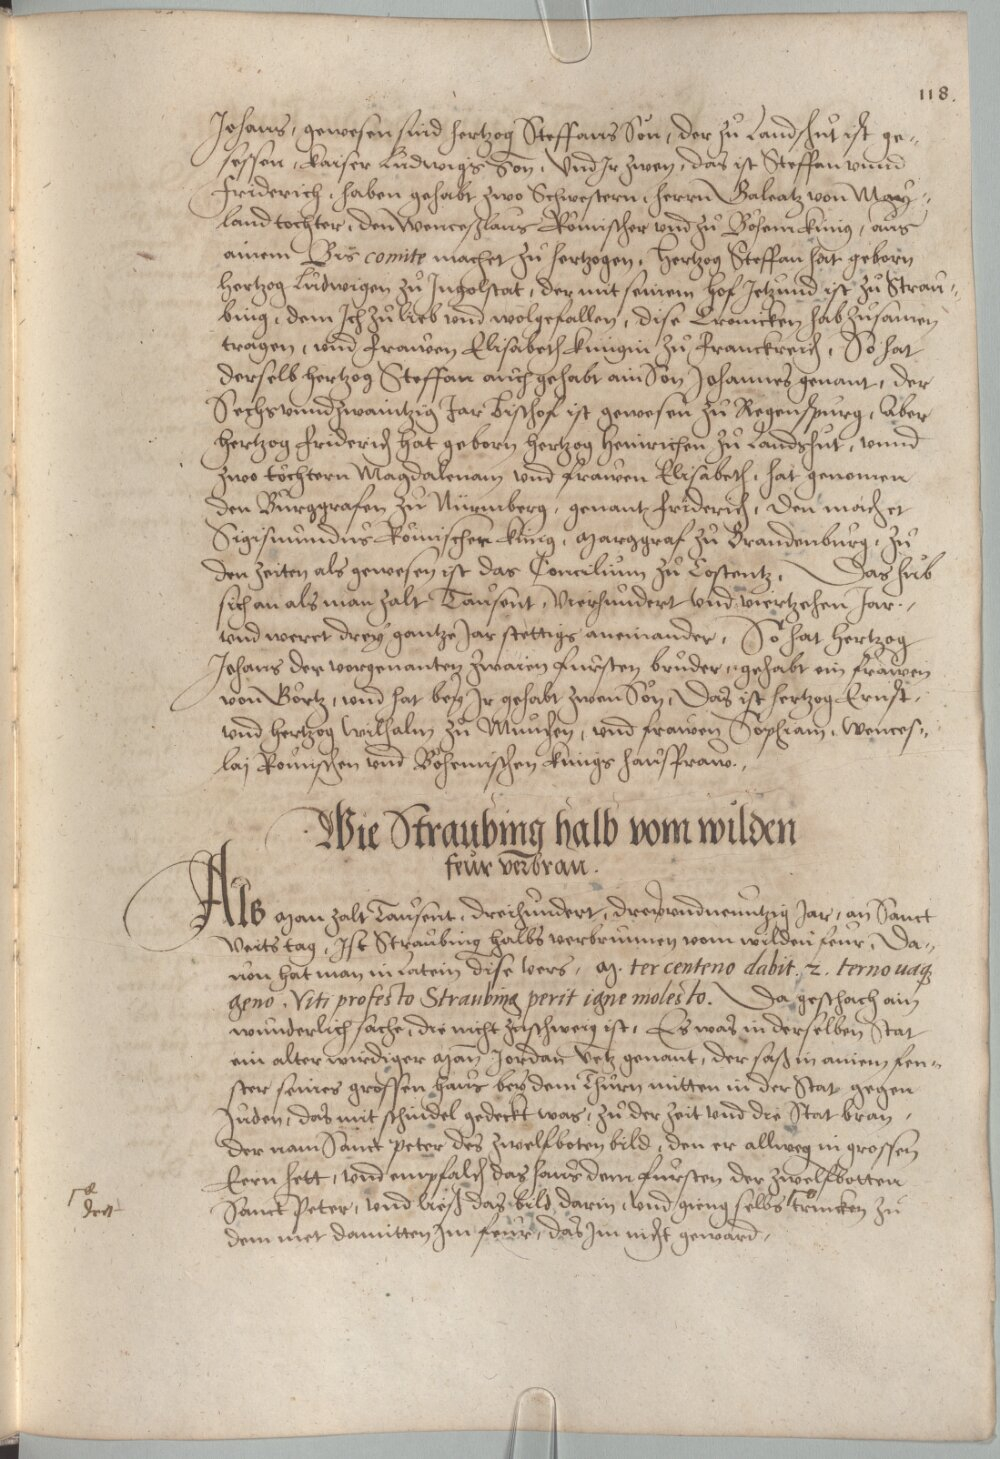 118.
Johans, gewesen sind hertzog Steffans Sön, der zů Landshůt ist ge-
sessen, kaiser Ludwigs Son, Und Jr zwen, das ist Steffan unnd
Friderich, haben gehabt zwo Schwestern, herrn Galeatz von May-
land tochter, den Wenceßlaus Römischer und zů Bohem kinig, aus
ainem Bis comite machet zů hertzogen, Hertzog Steffan hat geborn
hertzog Ludwigen zů Jngolstat, der mit seinem hof Jetzund ist zů Strau-
bing, dem Jch zů lieb und wolgefallen, dise Cronicken hab zůsamen
tragen, und frawen Elisabeth kinigin zů Franckreich, So hat
derselb hertzog Steffan auch gehabt ain Son Johannes genant, der
Sechsunndzwaintzig Jar Bischof ist gewesen zů Regenspurg, Aber
hertzog Friderich hat geborn hertzog Heinrichen zů Landshut, unnd
zwo töchtern Magdalenam und frawen Elisabeth, hat genomen
den Burggrafen zů Nürmberg, genant Friderich, Den machet
Sigismundus Römischer kinig, Marggraf zů Brandenburg, zů
den zeiten als gewesen ist das Concilium zů Costentz, Das hůb
sich an als man zalt Tausent, Vierhundert und viertzehen Jar.,
und weret drey gantze Jar stettigs aneinander, So hat hertzog
Johans der vorgenanten zwaien fursten bruder, gehabt ein frawen
von Görtz, und hat bey Jr gehabt zwen Sön, Das ist hertzog Ernst,
und hertzog Wilhalm zů Munchen, und frawen Sophiam, Wences-
lai Römischen und Böhemischen kinigs hausfraw.,
Wie Straubing halb vom wilden
feur verbran.
Als Man zalt Tausent, dreihundert, dreyundneuntzig Jar, an Sanct
Veits tag, Jst Straubing halbs verbrunnen vom wilden feur, Da-
von hat man in Latein dise vers, M. ter centeno dabit. z. terno uaq
geno. Viti profesto Straubing perit igne molesto. Da geschach ain
wunderlich sache, die nicht zuschweig ist, Es was in derselben Stat
ein alter wirdiger Man Jordan Vetz genant, der saß in ainem fen-
ster seines grossen haus bey dem Thurn mitten in der Stat gegen
Juden, das mit schindel gedeckt was, zů der zeit und die Stat bran,
Der nam Sanct Peter des zwelfboten bild, den er allweg in grossen
Eern hett, und empfalch das haus dem fursten der zwelfbotten
Sanct Peter, und ließ das bild darin, und gieng selbs trincken zů
dem met damitten im feur, das im nicht geward,